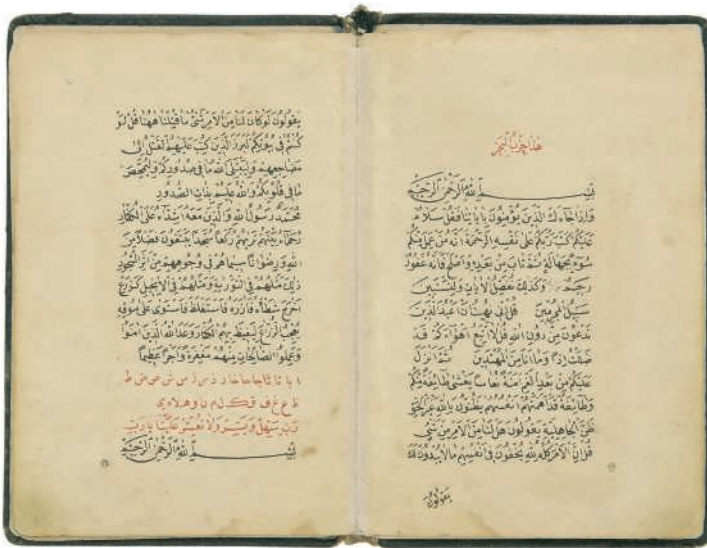 هذا حزب البحر
بسم الله الرحمن الرحيم
وَاِذَا جَاءَكَ الَّذِينَ يُؤْمِنُونَ بِاٰيَاتِنَا فَقُلْ سَلَامٌ
عَلَيْكُمْ كَتَبَ رَبُّكُمْ عَلَى نَفْسِهِ الرَّحْمَةَ اَنَّهُ مَنْ عَمِلَ مِنْكُمْ
سُوءً بِجَهَالَةٍ ثُمَّ تَابَ مِنْ بَعْدِهِ وَاَصْلَحَ فَاَنَّهُ غَفُورٌ
رَحِيمٌ وَكَذَلِكَ نُفَصِّلُ الْاٰيَاتِ وَلِتَسْتَبِينَ
سَبِيلُ الْمُجْرِمِينَ قُلْ اِنِّي نُهِيتُ اَنْ اَعْبُدَ الَّذِينَ
تَدْعُونَ مِنْ دُونِ اللهِ قُلْ لَا اَتَّبِعُ اَهْوَاءَكُمْ قَدْ
ضَلَلْتُ اِذًا وَمَا اَنَا مِنَ الْمُهْتَدِينَ ثُمَّ اَنْزَلَ
عَلَيْكُمْ مِنْ بَعْدِ الْغَمِّ اَمَنَةً نُعَاسًا يَغْشَى طَائِفَةً مِنْكُمْ
وَطَائِفَةٌ قَدْ اَهَمَّتْهُمْ اَنْفُسُهُمْ يَظُنُّونَ بِاللهِ غَيْرَ الْحَقِّ
ظَنَّ الْجَاهِلِيَّةِ يَقُولُونَ هَلْ لَنَا مِنَ الْاَمْرِ مِنْ شَيْءٍ
قُلْ اِنَّ الْاَمْرَ كُلَّهُ لِلهِ يُخْفُونَ فِي اَنْفُسِهِمْ مَا لَا يُبْدُونَ لَكَ
يَقُولُونَ
يَقُولُونَ لَوْ كَانَ لَنَا مِنَ الْاَمْرِ شَيْءٌ مَا قُتِلْنَا هٰهُنَا قُلْ لَوْ
كُنْتُمْ فِي بُيُوتِكُمْ لَبَرَزَ الَّذِينَ كُتِبَ عَلَيْهِمُ الْقَتْلُ اِلَى
مَضَاجِعِهِمْ وَلِيَبْتَلِيَ اللهُ مَا فِي صُدُورِكُمْ وَلِيُمَحِّصَ
مَا فِي قُلُوبِكُمْ وَاللهُ عَلِيمٌ بِذَاتِ الصُّدُورِ
مُحَمَّدٌ رَسُولُ اللهِ وَالَّذِينَ مَعَهُ اَشِدَّاءُ عَلَى الْكُفَّارِ
رُحَمَاءُ بَيْنَهُمْ تَرٰيهُمْ رُكَّعًا سُجَّدًا يَبْتَغُونَ فَضْلًا مِنَ
اللهِ وَرِضْوَانًا سِيمَاهُمْ فِي وُجُوهِهِمْ مِنْ اَثَرِ السُّجُودِ
ذَلِكَ مَثَلُهُمْ فِي التَّوْرٰيةِ وَمَثَلُهُمْ فِي الْاِنْجِيلِ كَزَرْعٍ
اَخْرَجَ شَطْأَهُ فَاٰزَرَهُ فَاسْتَغْلَظَ فَاسْتَوَى عَلَى سُوقِهِ
يُعْجِبُ الزُّرَّاعَ لِيَغِيظَ بِهِمُ الْكُفَّارَ وَعَدَ اللهُ الَّذِينَ اٰمَنُوا
وَعَمِلُوا الصَّالِحَاتِ مِنْهُمْ مَغْفِرَةً وَاَجْرًا عَظِيمًا
ا با تا ثا جا حا خا د ذ ر ز س ش ص ض ط
ظ ع غ ف ق ك ل م ن و ه لا ي
رَبِّ سَهِّلْ وَيَسِّرْ وَلَا تُعَسِّرْ عَلَيْنَا يَا رَبِّ
بسم الله الرحمن الرحيم